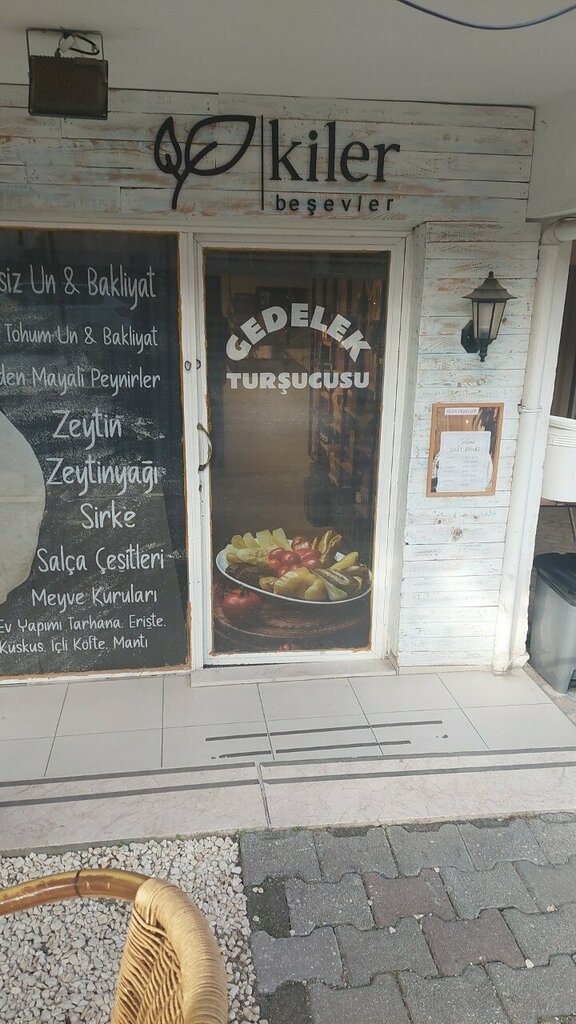 kiler
beşevler
siz Un & Bakliyat
Tohum Un & Bakliyat
den Mayalı Peynirler
Zeytin
Zeytinyağı
Sirke
Salça Çeşitleri
Meyve Kuruları
Ev Yapımı Tarhana, Erişte,
Kuskus, İçli Köfte, Mantı
GEDELEK
TURŞUCUSU